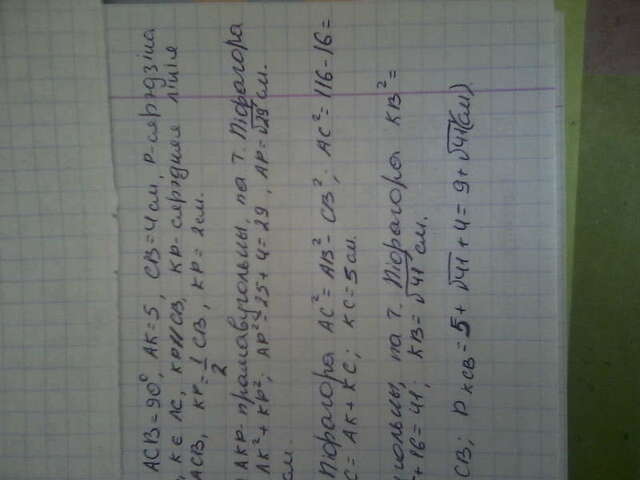 ACB=90°, AK=5, CB=4см, P-сярэдзіна
, K∈AC, KP∥CB, KP-сярэдняя лінія
ACB, KP=1/2 CB, KP=2см.
AKP-прамавугольны, па т. Піфагора
AK²+KP²; AP²=25+4=29, AP=√29 см.
см.
Піфагора AC²=AB²-CB²; AC²=116-16=
C=AK+KC; KC=5см.
угольны, па т. Піфагора KB²=
+16=41; KB=√41 см.
CB; P KCB=5+√41+4=9+√41(см)